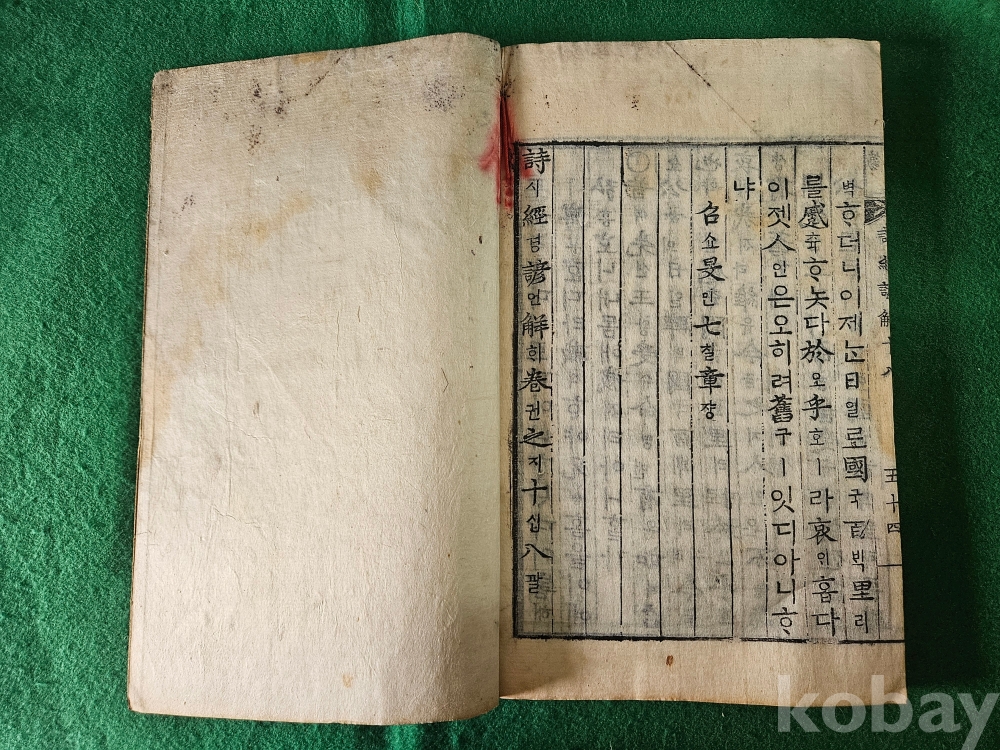 벽ᄒᆞ더니이제ᄂᆞᆫ日일로國국百ᄇᆡᆨ里리
를蹙츅ᄒᆞ놋다於오乎호ㅣ라哀ᄋᆡ홉다
이젯人인은오히려舊구ㅣ잇디아니ᄒᆞ
냐
召쇼旻민七칠章쟝
詩시經경諺언解ᄒᆡ卷권之지十십八팔
五十四
kobay